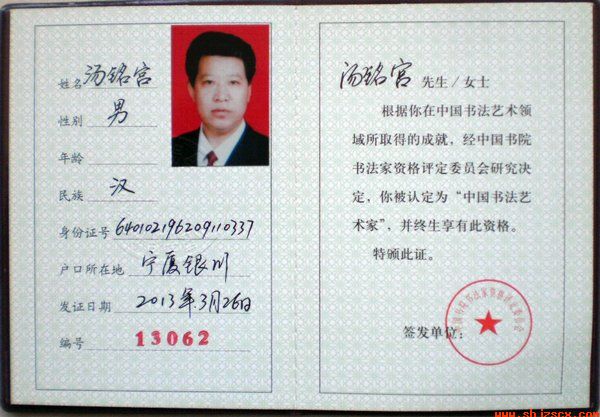 姓名 汤铭宫
性别 男
年龄
民族 汉
身份证号 640102196209110337
户口所在地 宁夏银川
发证日期 2013年3月26日
编号 13062
汤铭宫 先生/女士
根据你在中国书法艺术领
域所取得的成就，经中国书院
书法家资格评定委员会研究决
定，你被认定为“中国书法艺
术家”，并终生享有此资格。
特颁此证。
签发单位：
中国书院书法家资格评定委员会
www.shjzscx.com